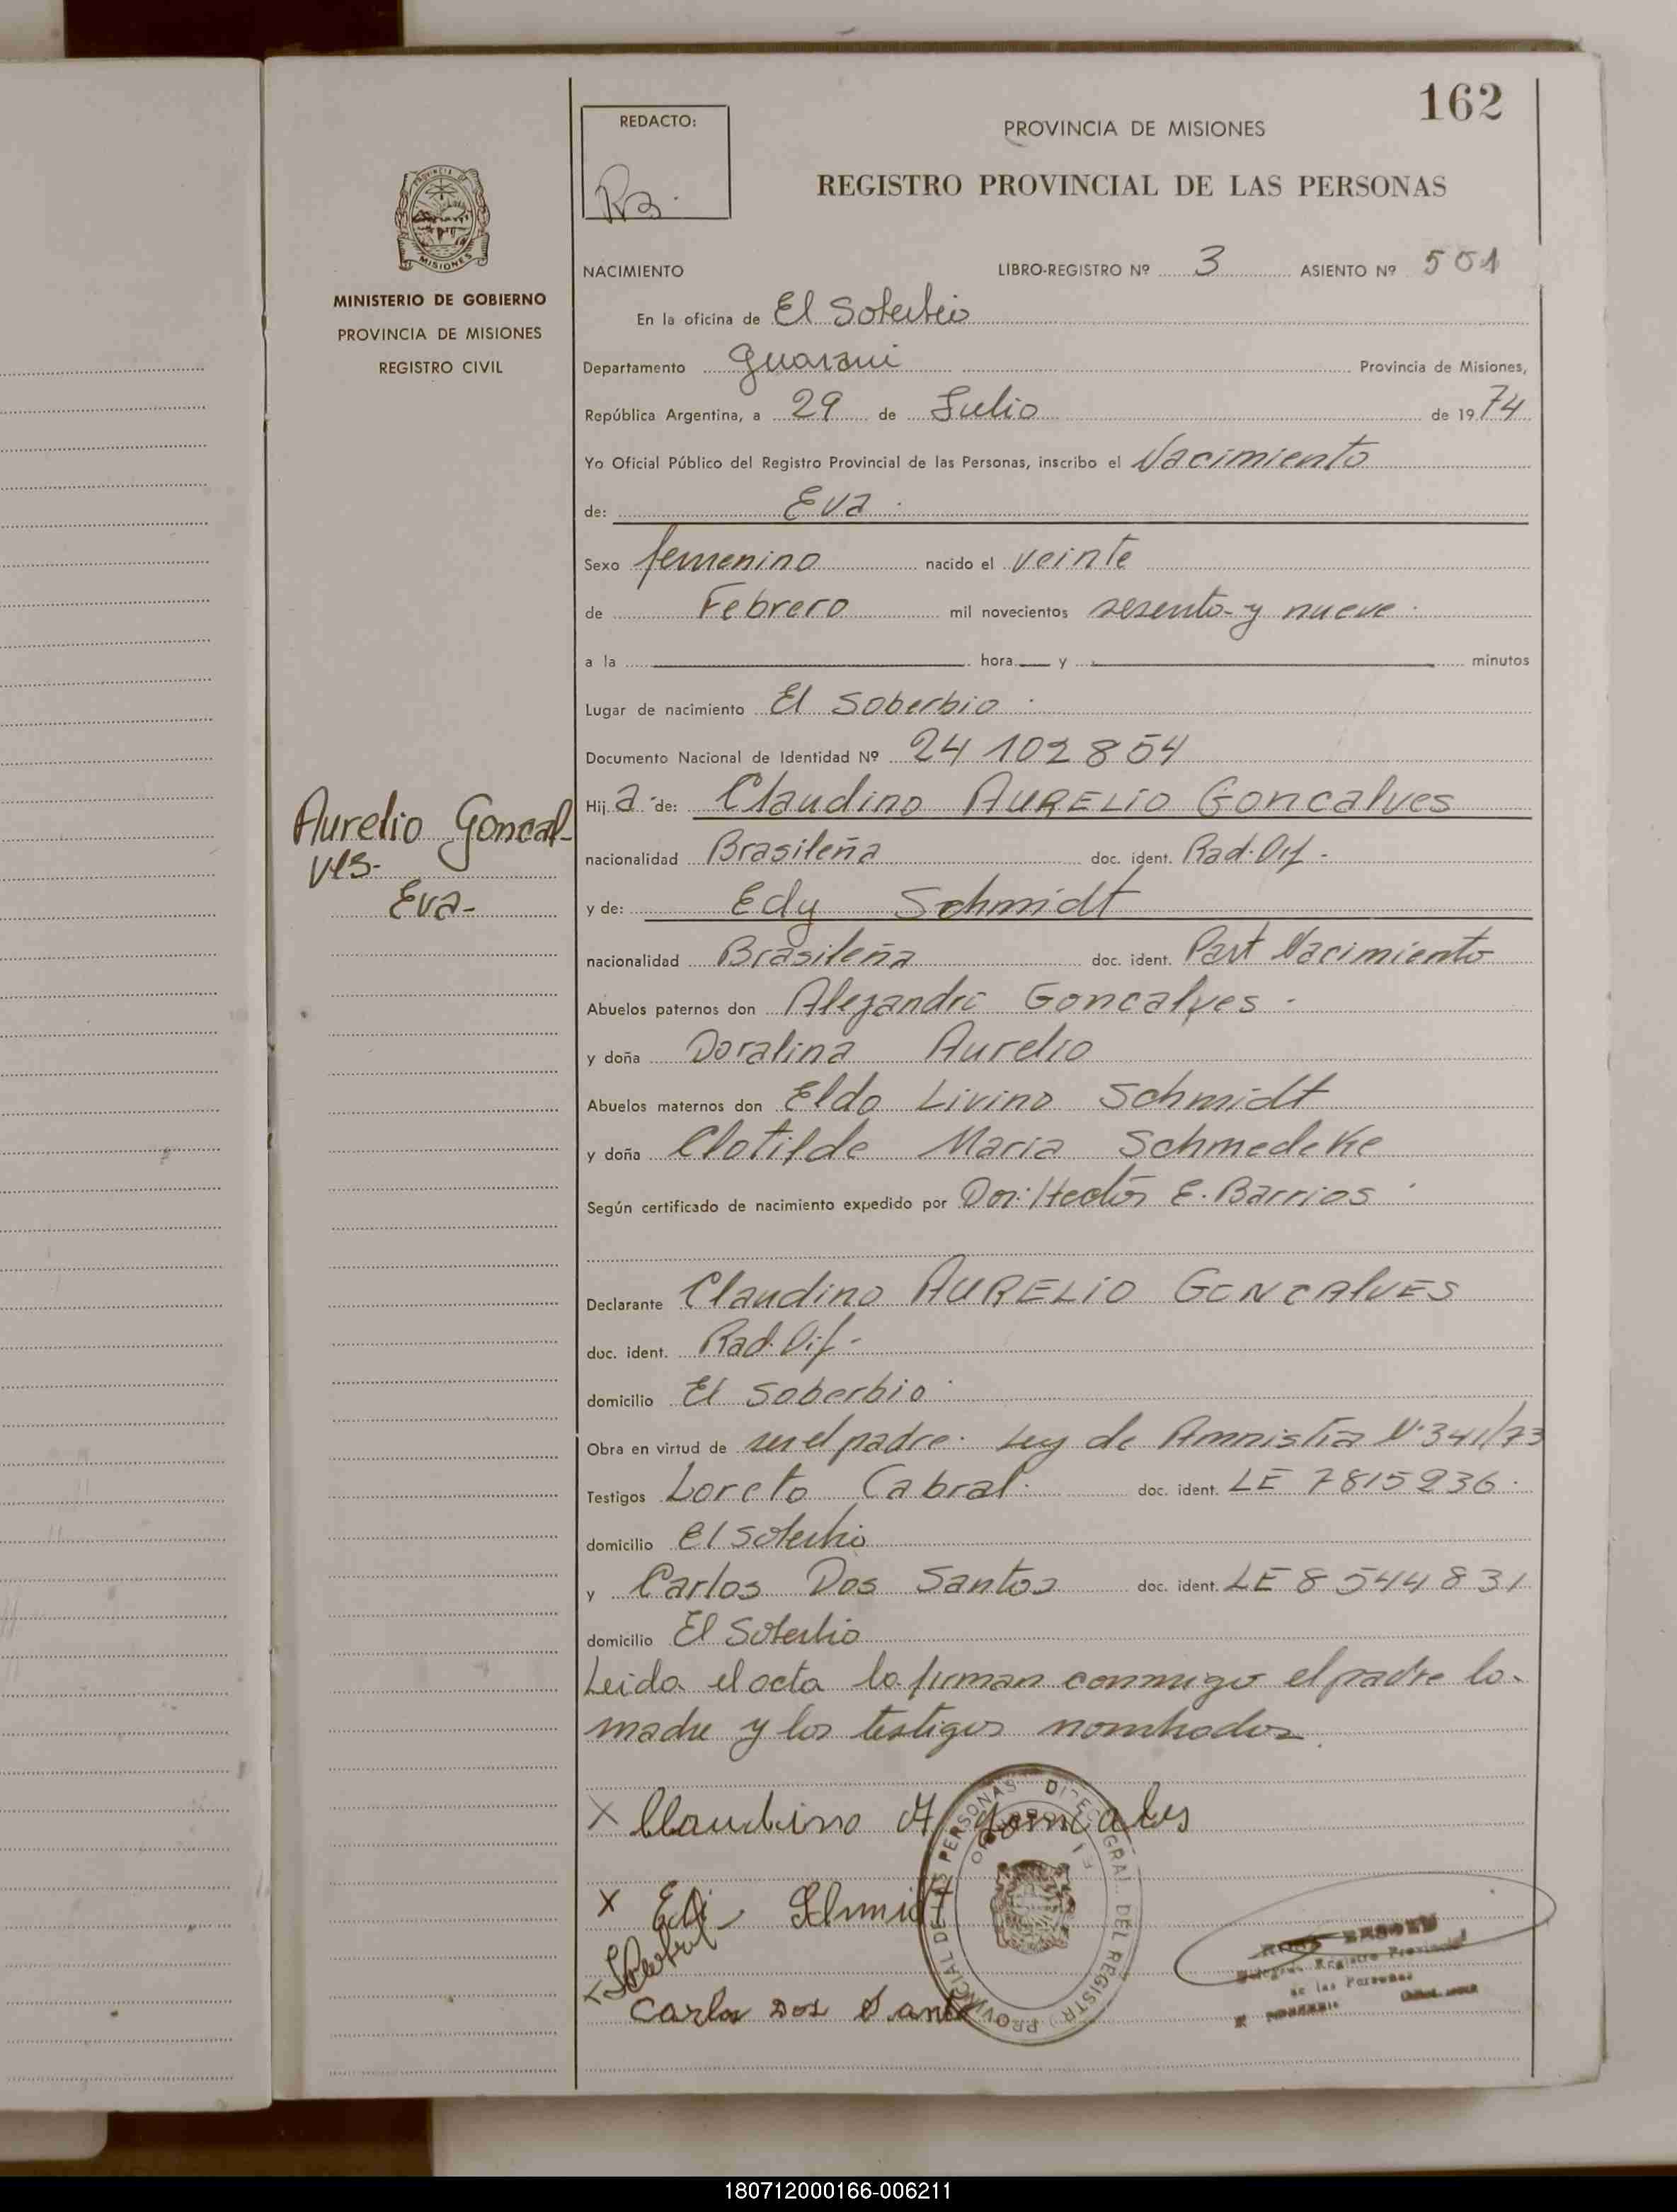 162
REDACTO:
PROVINCIA DE MISIONES
REGISTRO PROVINCIAL DE LAS PERSONAS
PROVINCIA DE
MISIONES
MINISTERIO DE GOBIERNO
PROVINCIA DE MISIONES
REGISTRO CIVIL
NACIMIENTO LIBRO-REGISTRO Nº 3 ASIENTO Nº 501
En la oficina de El Soberbio
Departamento Guarani Provincia de Misiones,
República Argentina, a 29 de Julio de 1974
Yo Oficial Público del Registro Provincial de las Personas, inscribo el Nacimiento
de: Eva.
Sexo femenino nacido el veinte
de Febrero mil novecientos sesenta y nueve.
a la hora y minutos
Lugar de nacimiento El Soberbio.
Documento Nacional de Identidad Nº 24 102 854
Hija de: Claudino AURELIO Goncalves
Aurelio Goncal-
ves-
Eva-
nacionalidad Brasileña doc. ident. Rad. Dif-
y de: Edy Schmidt
nacionalidad Brasileña doc. ident. Part Nacimiento
Abuelos paternos don Alejandro Goncalves-
y doña Doralina Aurelio
Abuelos maternos don Eldo Livino Schmidt
y doña Clotilde Maria Schmedeke
Según certificado de nacimiento expedido por Dor: Hector E. Barrios.
Declarante Claudino AURELIO GONCALVES
doc. ident. Rad. Dif-
domicilio El Soberbio.
Obra en virtud de ser el padre. Ley de Amnistia N° 341/73
Testigos Loreto Cabral. doc. ident. LE 7815236.
domicilio El Soberbio
y Carlos Dos Santos doc. ident. LE 8544831
domicilio El Soberbio
Leida el acta la firman conmigo el padre la
madre y los testigos nombrados.
X Claudino A goncalves
X Edi Schmidt
Carlos Dos Santo
DIREC. GRAL. DEL REGISTRO PROVINCIAL DE LAS PERSONAS
Registro Provincial
de las Personas
180712000166-006211